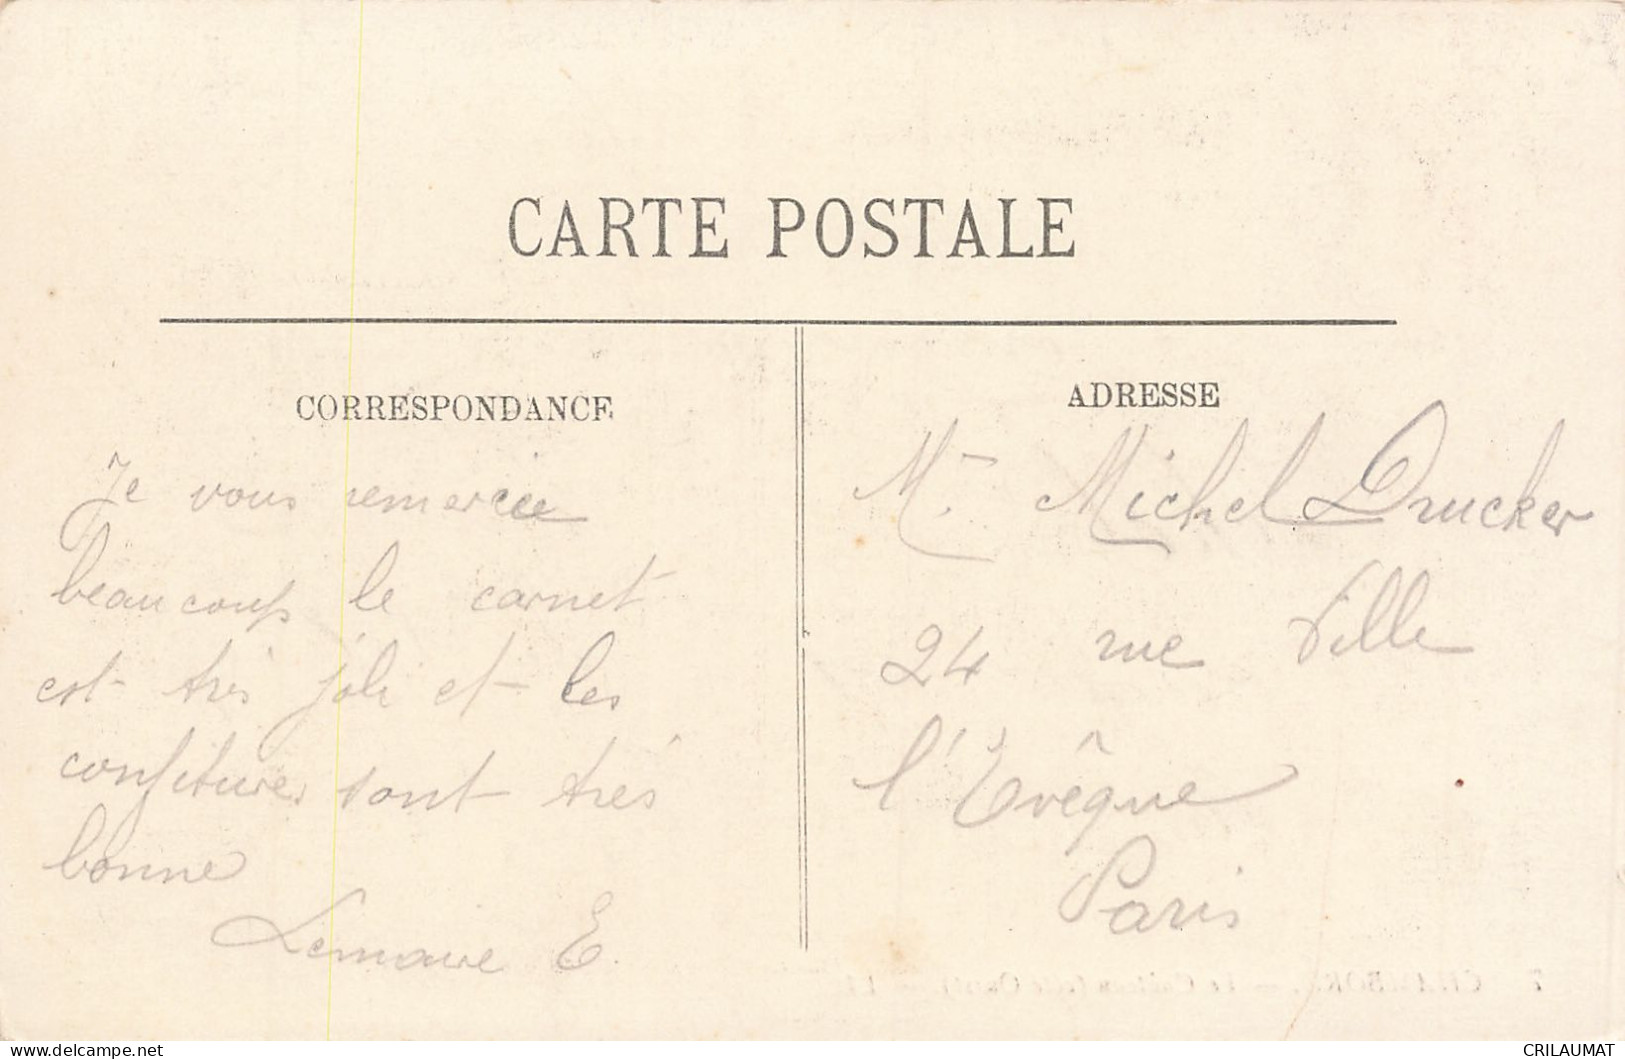 CARTE POSTALE
CORRESPONDANCE
Je vous remercie
beaucoup le carnet
est très joli et les
confitures sont très
bonne
Lemaire E.
ADRESSE
Mr Michel Drucker
24 rue Ville
l'Evêque
Paris
7 CHAMBORD. — Le Château (côté Ouest). — LL
www.delcampe.net
CRILAUMAT